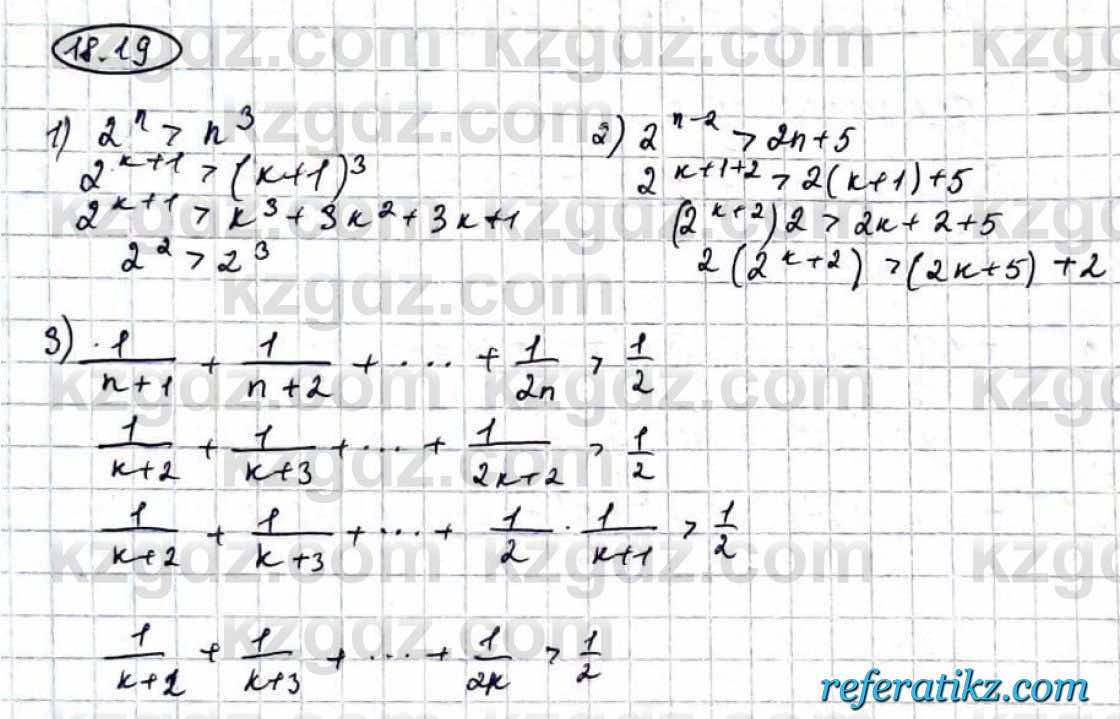 18.19
1) 2^n > n^3
2^{k+1} > (k+1)^3
2^{k+1} > k^3 + 3k^2 + 3k + 1
2^2 > 2^3
2) 2^{n-2} > 2n+5
2^{k+1+2} > 2(k+1)+5
(2^{k+2})2 > 2k+2+5
2(2^{k+2}) > (2k+5)+2
3) \frac{1}{n+1} + \frac{1}{n+2} + .... + \frac{1}{2n} > \frac{1}{2}
\frac{1}{k+2} + \frac{1}{k+3} + ... + \frac{1}{2k+2} > \frac{1}{2}
\frac{1}{k+2} + \frac{1}{k+3} + ... + \frac{1}{2} · \frac{1}{k+1} > \frac{1}{2}
\frac{1}{k+2} + \frac{1}{k+3} + ... + \frac{1}{2k} > \frac{1}{2}
kzgdz.com
referatikz.com